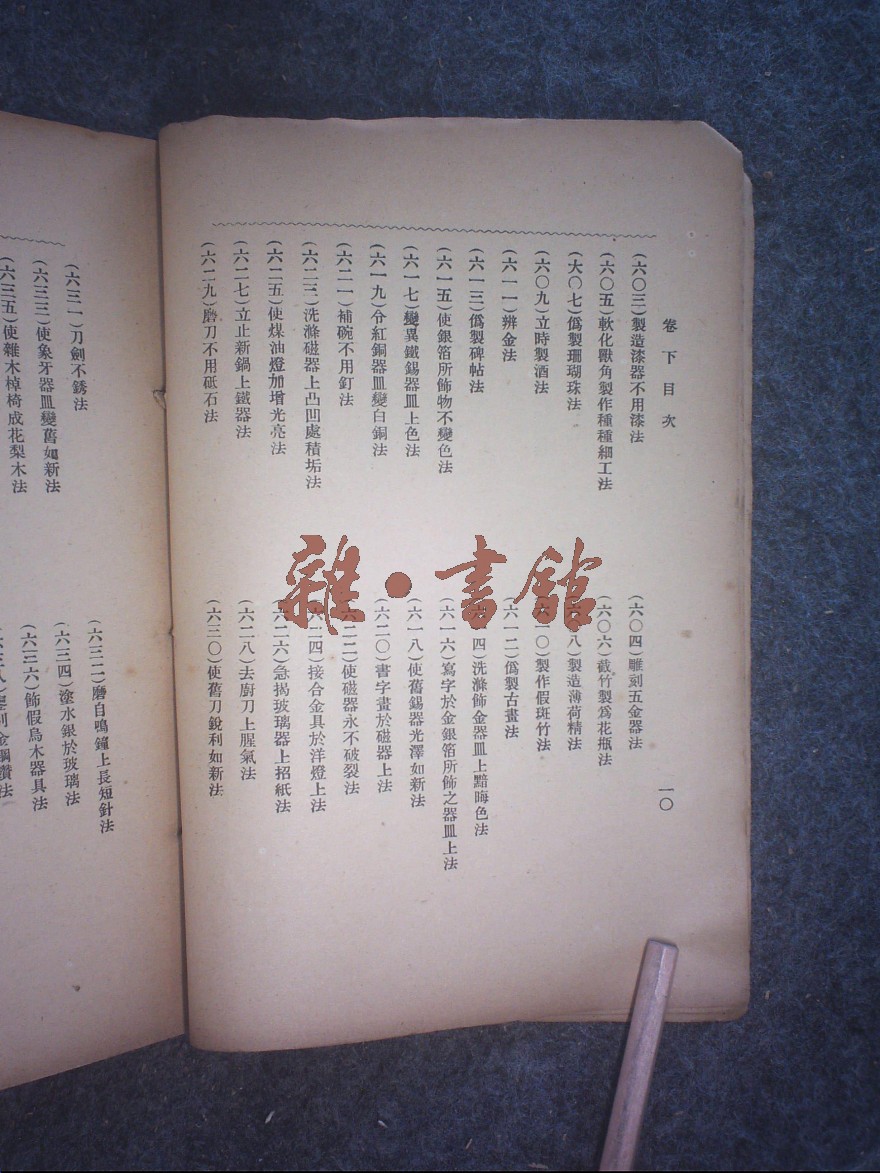 卷下目次
一〇
(六〇三)製造漆器不用漆法
(六〇四)雕刻五金器法
(六〇五)軟化獸角製作種種細工法
(六〇六)截竹製爲花瓶法
(大〇七)爲製珊瑚珠法
八)製造薄荷精法
(六〇九)立時製酒法
(六一〇)製作假斑竹法
(六一一)辨金法
(六一二)僞製古畫法
(六一三)僞製碑帖法
四)洗滌飾金器皿上黯晦色法
(六一五)使銀箔所飾物不變色法
(六一六)寫字於金銀箔所飾之器皿上法
(六一七)變異鐵錫器皿上色法
(六一八)使舊錫器光澤如新法
(六一九)令紅銅器皿變白銅法
(六二〇)書字畫於磁器上法
(六二一)補碗不用釘法
二二)使磁器永不破裂法
(六二三)洗滌磁器上凸凹處積垢法
二四)接合金具於洋燈上法
(六二五)使煤油燈加增光亮法
(六二六)急揭玻璃器上招紙法
(六二七)立止新鍋上鐵器法
(六二八)去廚刀上腥氣法
(六二九)磨刀不用砥石法
(六三〇)使舊刀銳利如新法
(六三一)刀劍不銹法
(六三二)磨自鳴鐘上長短針法
(六三三)使象牙器皿變舊如新法
(六三四)塗水銀於玻璃法
(六三五)使雜木棹椅成花梨木法
(六三六)飾假烏木器具法
金鋼鑽法
雜·書館